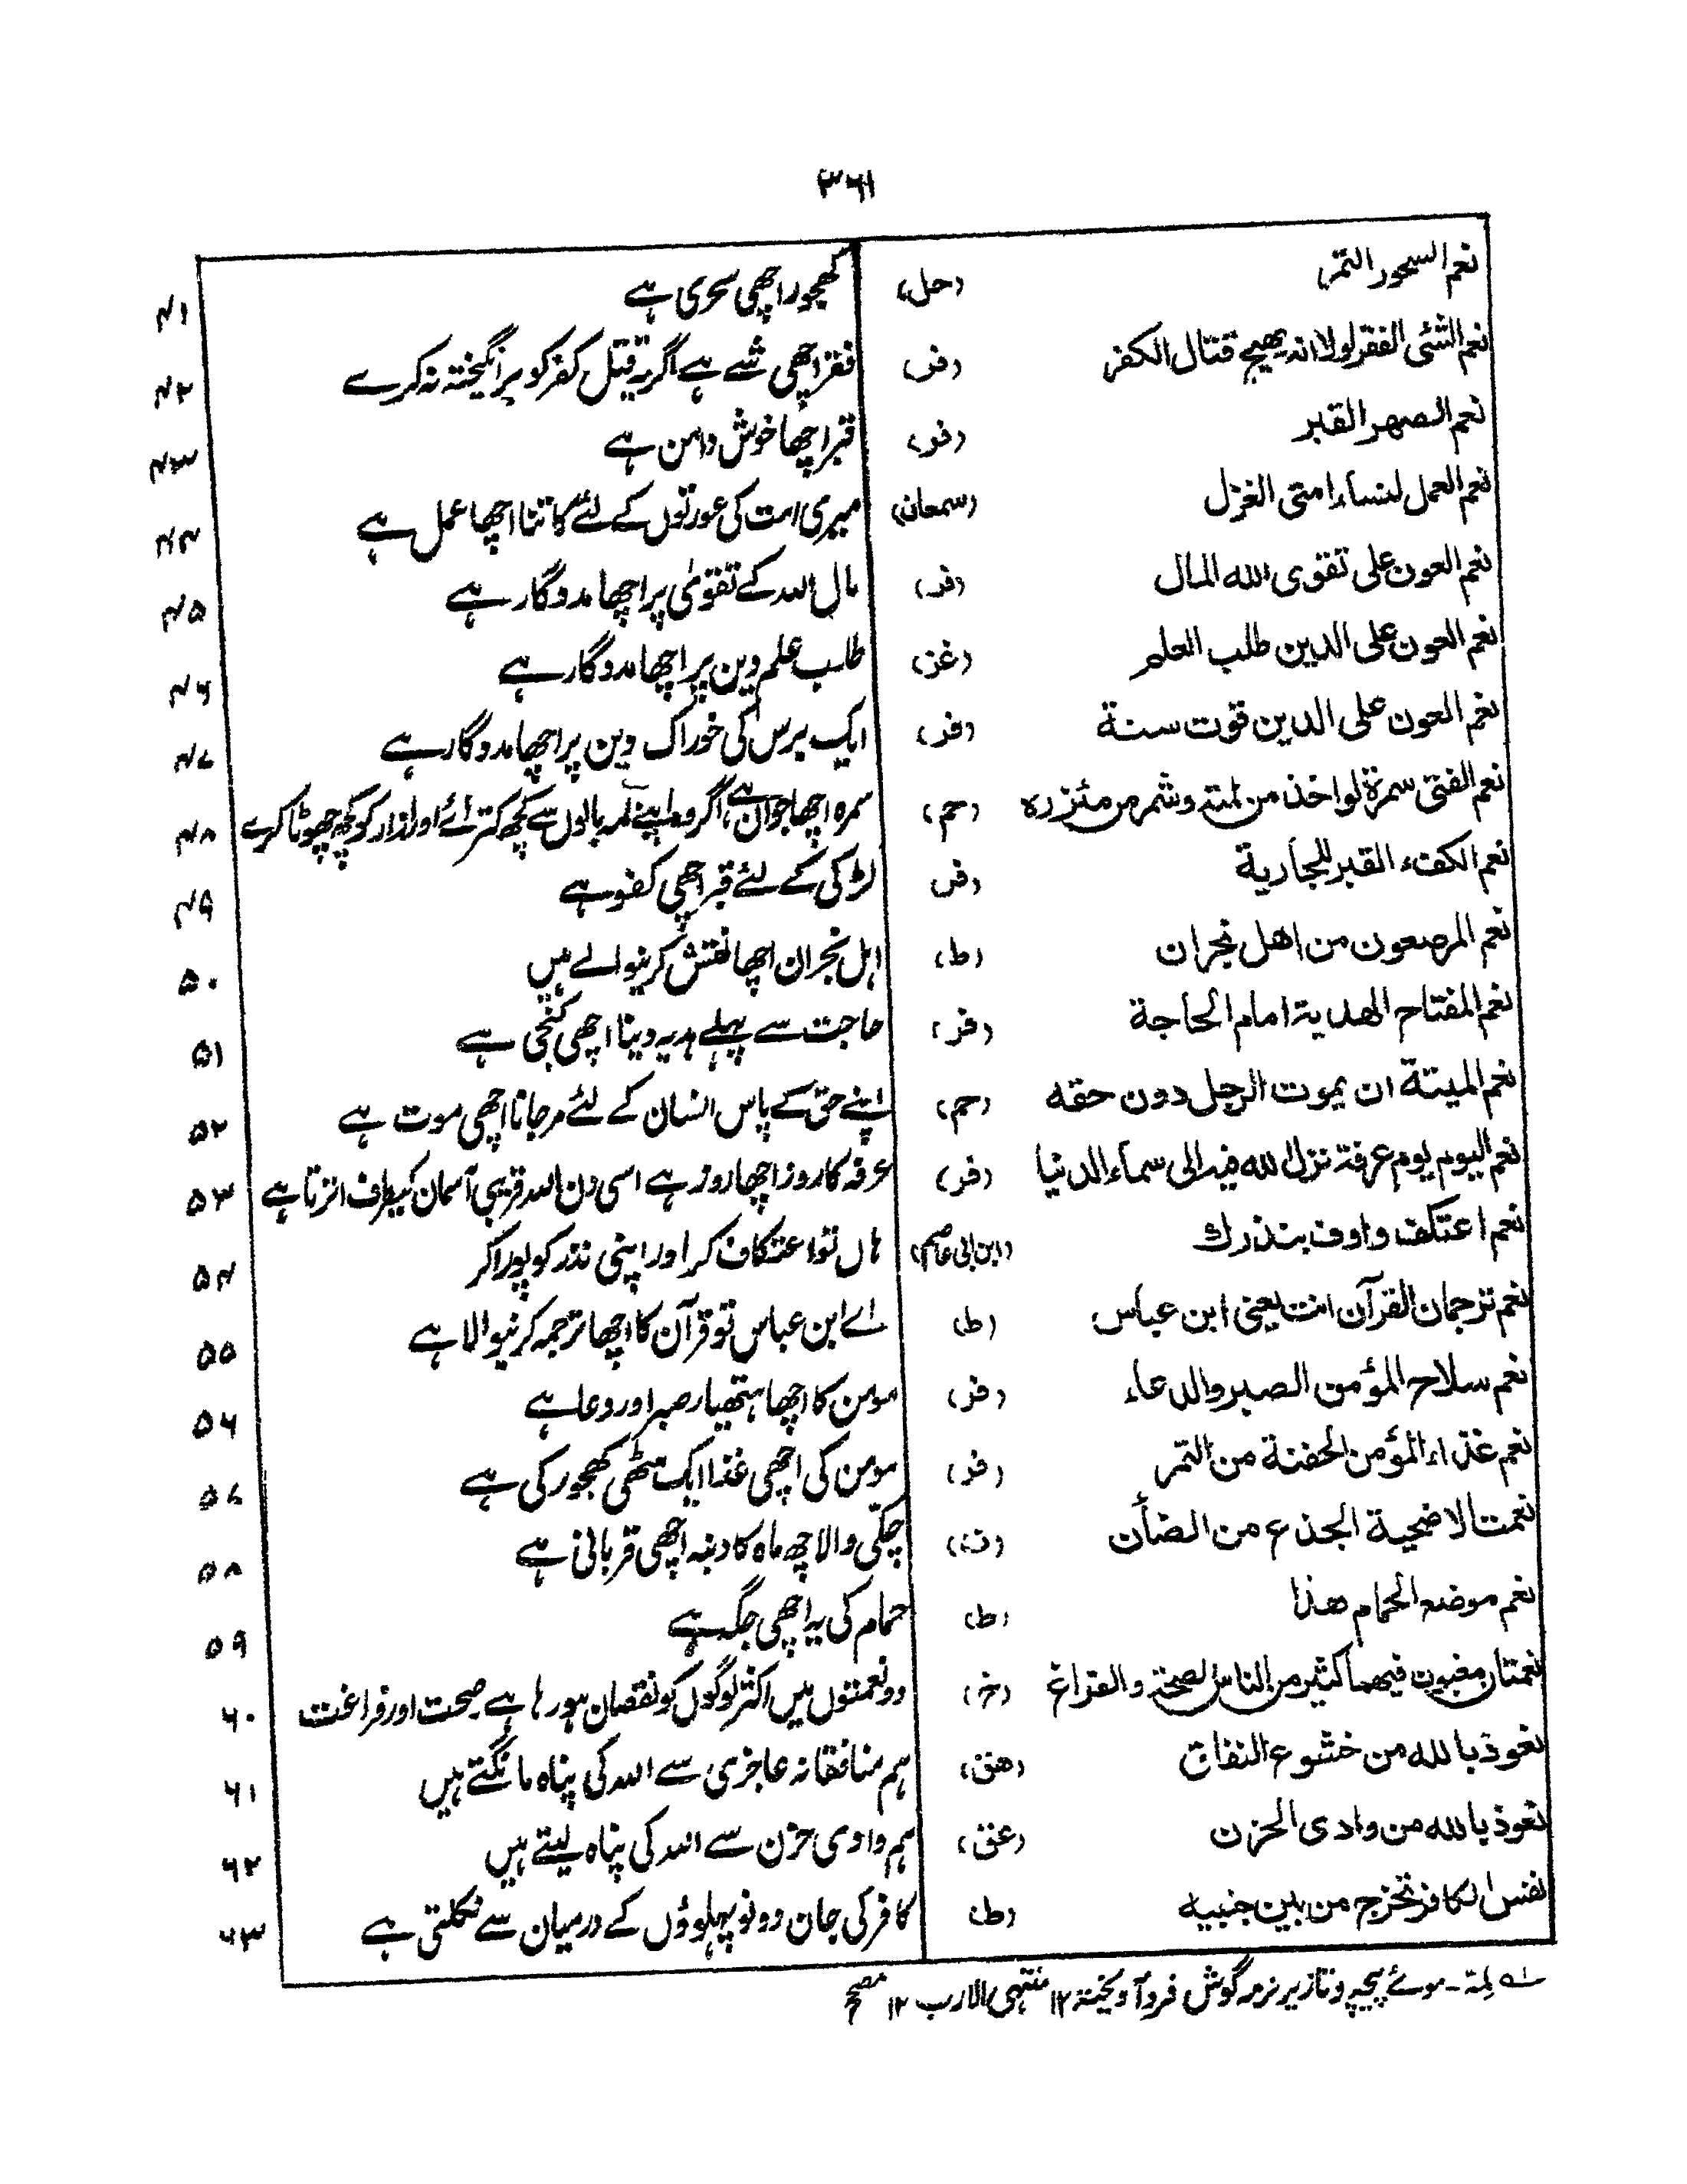 ۳۶۱
نعم السحور التمر (حل) کھجور اچھی سحری ہے ۴۱
نعم الشئی الفقر لولا انہ یھیج قتال الکفر (فر) فقر اچھی شے ہے اگر یہ قتل کفر کو برانگیختہ نہ کرے ۴۲
نعم الصھر القبر (فر) قبر اچھا خوش دامن ہے ۴۳
نعم العمل لنساء امتی الغزل (سمعان) میری امت کی عورتوں کے لئے کاتنا اچھا عمل ہے ۴۴
نعم العون علی تقوی اللہ المال (فر) مال اللہ کے تقوٰی پر اچھا مددگار ہے ۴۵
نعم العون علی الدین طلب العلم (غز) طلب علم دین پر اچھا مددگار ہے ۴۶
نعم العون علی الدین قوت سنة (فر) ایک برس کی خوراک دین پر اچھا مددگار ہے ۴۷
نعم الفتی سمرة لو اخذ من لمتہ وشمر من مئزرہ (حم) سمرہ اچھا جوان ہے اگر وہ اپنے لمہ بالوں سے کچھ کترائے اور ازار کو کچھ چھوٹا کرے ۴۸
نعم الکفء القبر للجاریة (فر) لڑکی کے لئے قبر اچھی کفو ہے ۴۹
نعم المرصعون من اھل نجران (ط) اہل نجران اچھا نقش کرنیوالے ہیں ۵۰
نعم المفتاح الھدیة امام الحاجة (فر) حاجت سے پہلے ہدیہ دینا اچھی کنجی ہے ۵۱
نعم المیتة ان یموت الرجل دون حقہ (حم) اپنے حق کے پاس انسان کے لئے مرجانا اچھی موت ہے ۵۲
نعم الیوم یوم عرفة نزل اللہ فیہ الی سماء الدنیا (فر) عرفہ کا روز اچھا روز ہے اسی دن اللہ قریبی آسمان کیطرف اترتا ہے ۵۳
نعم اعتکف واوف بنذرك (ابن ابی عاصم) ہاں تو اعتکاف کر اور اپنی نذر کو پورا کر ۵۴
نعم ترجمان القرآن انت یعنی ابن عباس (ط) اے ابن عباس تو قرآن کا اچھا ترجمہ کرنیوالا ہے ۵۵
نعم سلاح المؤمن الصبر والدعاء (فر) مومن کا اچھا ہتھیار صبر اور دعا ہے ۵۶
نعم غذاء المؤمن الحفنة من التمر (فر) مومن کی اچھی غذا ایک مٹھی کھجور کی ہے ۵۷
نعمت الاضحیة الجذع من الضأن (ت) چکی والا چھ ماہ کا دنبہ اچھی قربانی ہے ۵۸
نعم موضع الحمام ھذا (ط) حمام کی یہ اچھی جگہ ہے ۵۹
نعمتان مغبون فیھما کثیر من الناس الصحة والفراغ (خ) دو نعمتوں میں اکثر لوگوں کو نقصان ہو رہا ہے صحت اور فراغت ۶۰
نعوذ باللہ من خشوع النفاق (ھق) ہم منافقانہ عاجزی سے اللہ کی پناہ مانگتے ہیں ۶۱
نعوذ باللہ من وادی الحزن (عق) ہم وادی حزن سے اللہ کی پناہ لیتے ہیں ۶۲
نفس الکافر تخرج من بین جنبیہ (ط) کافر کی جان دونو پہلوؤں کے درمیان سے نکلتی ہے ۶۳
ـــہ لِمّة ـ موئے پیچہ وتازیر نرمہ گوش فردآویختہ ۱۲ منتہی الارب ۱۲ مصحح